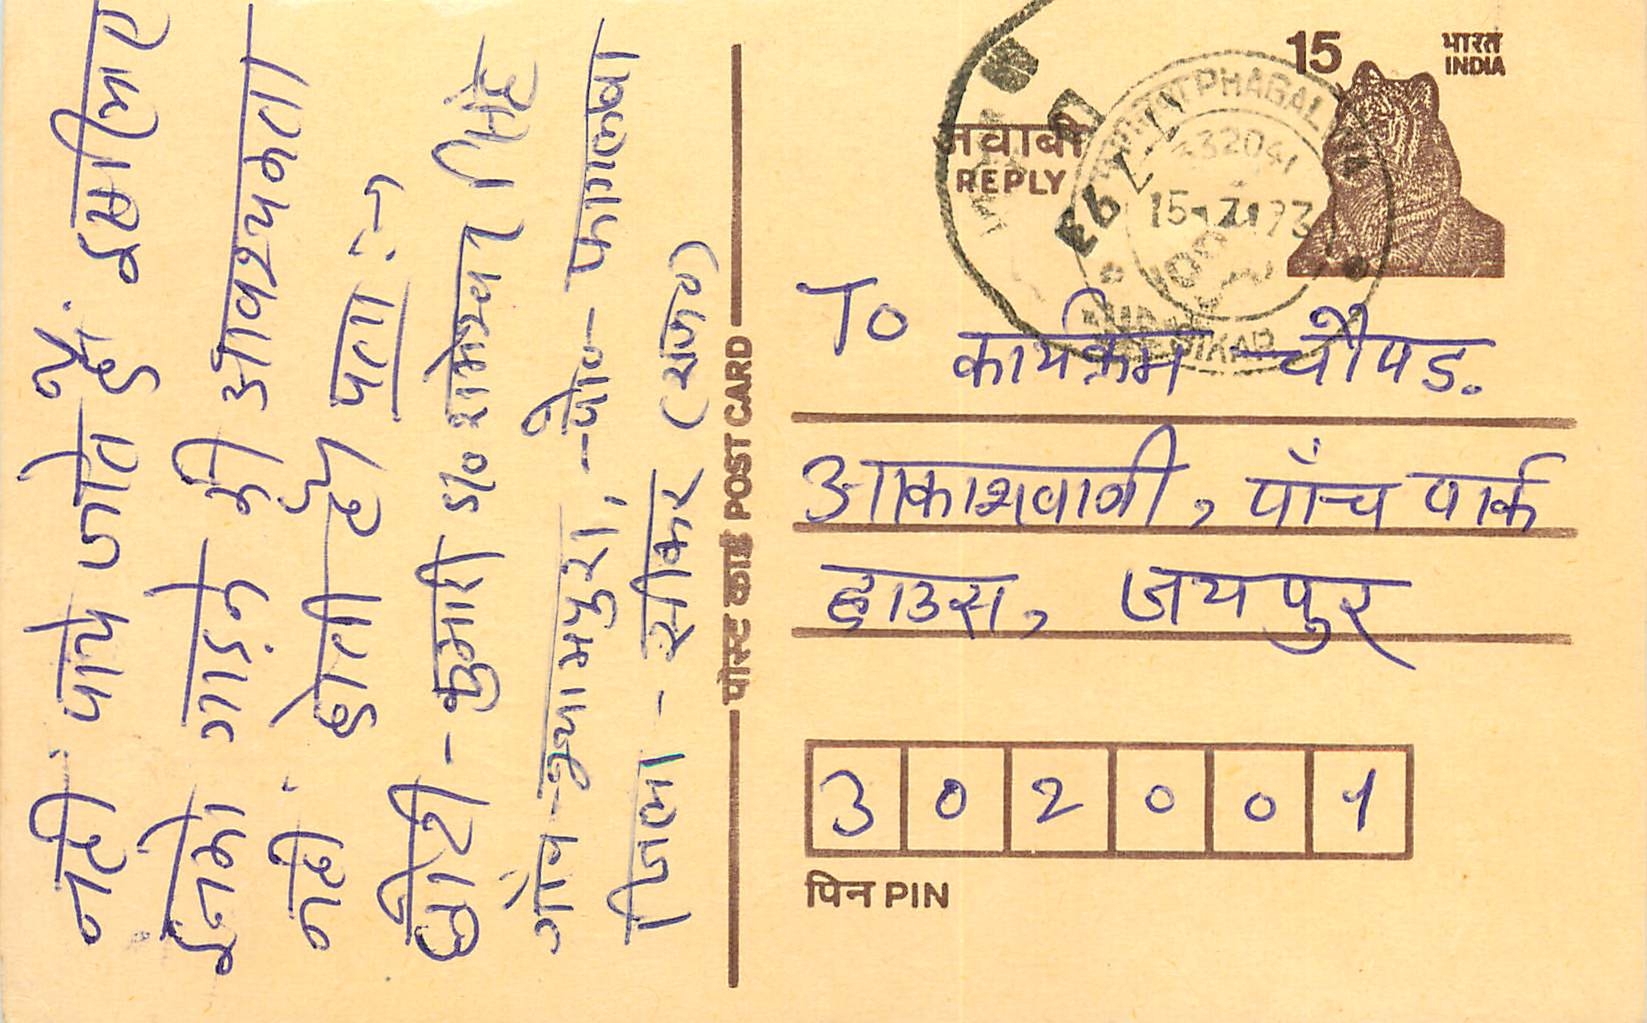 नही पाये जाते हैं. इसलिए
ईनमे गाड़ने की आवश्यकता
नहीं होती है। पता :-
छोटी - कुमारी s/o रामेश्वर सिंह
गाँव - श्यामपुरा, - पो० - फागलवा
जिला - सीकर (राज०)
पोस्ट कार्ड POST CARD
15
भारत
INDIA
जवाबी
REPLY
PHAGAL
332041
SIKAR
7 93
To
कार्यक्रम - चौपड.
आकाशवाणी, पाँच पार्क
हाउस, जयपुर
302001
पिन PIN